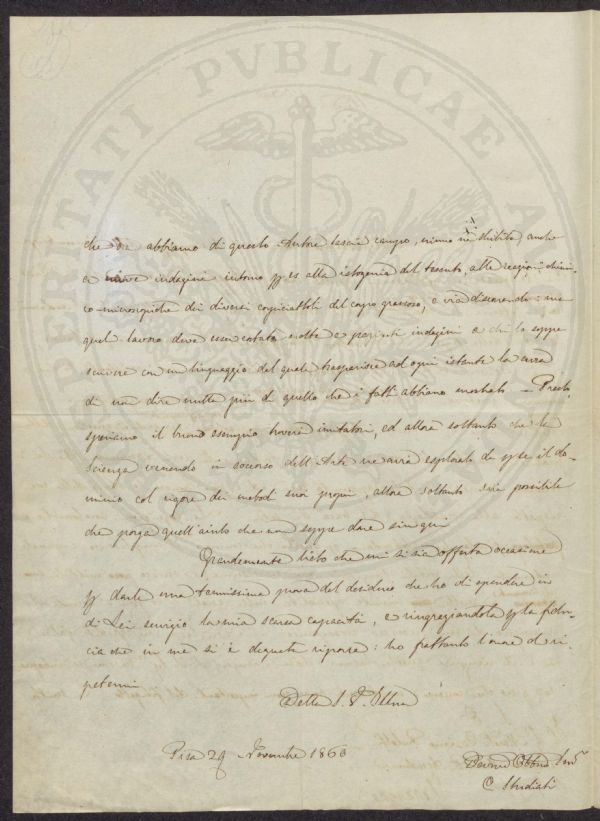 PERPETUITATI PVBLICAE
che abbiamo di questo Autore lascia campo, niuno ne dubita, anche
a nuove indagini intorno p es alla istogenia del tessuto, alle reazioni chimi-
co-microscopiche dei diversi del corpo grasso, e via discorrendo: ma
quel lavoro deve esser costato molte e pazienti indagini a chi lo seppe
scrivere con un linguaggio dal quale trasparisce ad ogni istante la cura
di non dire nulla più di quello che i fatti abbiano mostrato — Presto
speriamo il buono esempio troverà imitatori, ed allora soltanto che la
Scienza venendo in soccorso dell'Arte ne avrà esplorato il do-
minio col rigore dei metodi suoi propri, allora soltanto sarà possibile
che porga quell'aiuto che non seppe dare sin qui
Grandemente lieto che mi si sia offerta occasione
p darle una tenuissima prova del desiderio che ho di spendere in
di Lei servigio la mia scarsa capacità, e ringraziandola p la fidu-
cia che in me si è degnata riporre: ho frattanto l'onore di ri-
petermi
Della S. V. Illma
Pisa 29 Novembre 1860
Devmo Obbmo Serv
C. Studiati